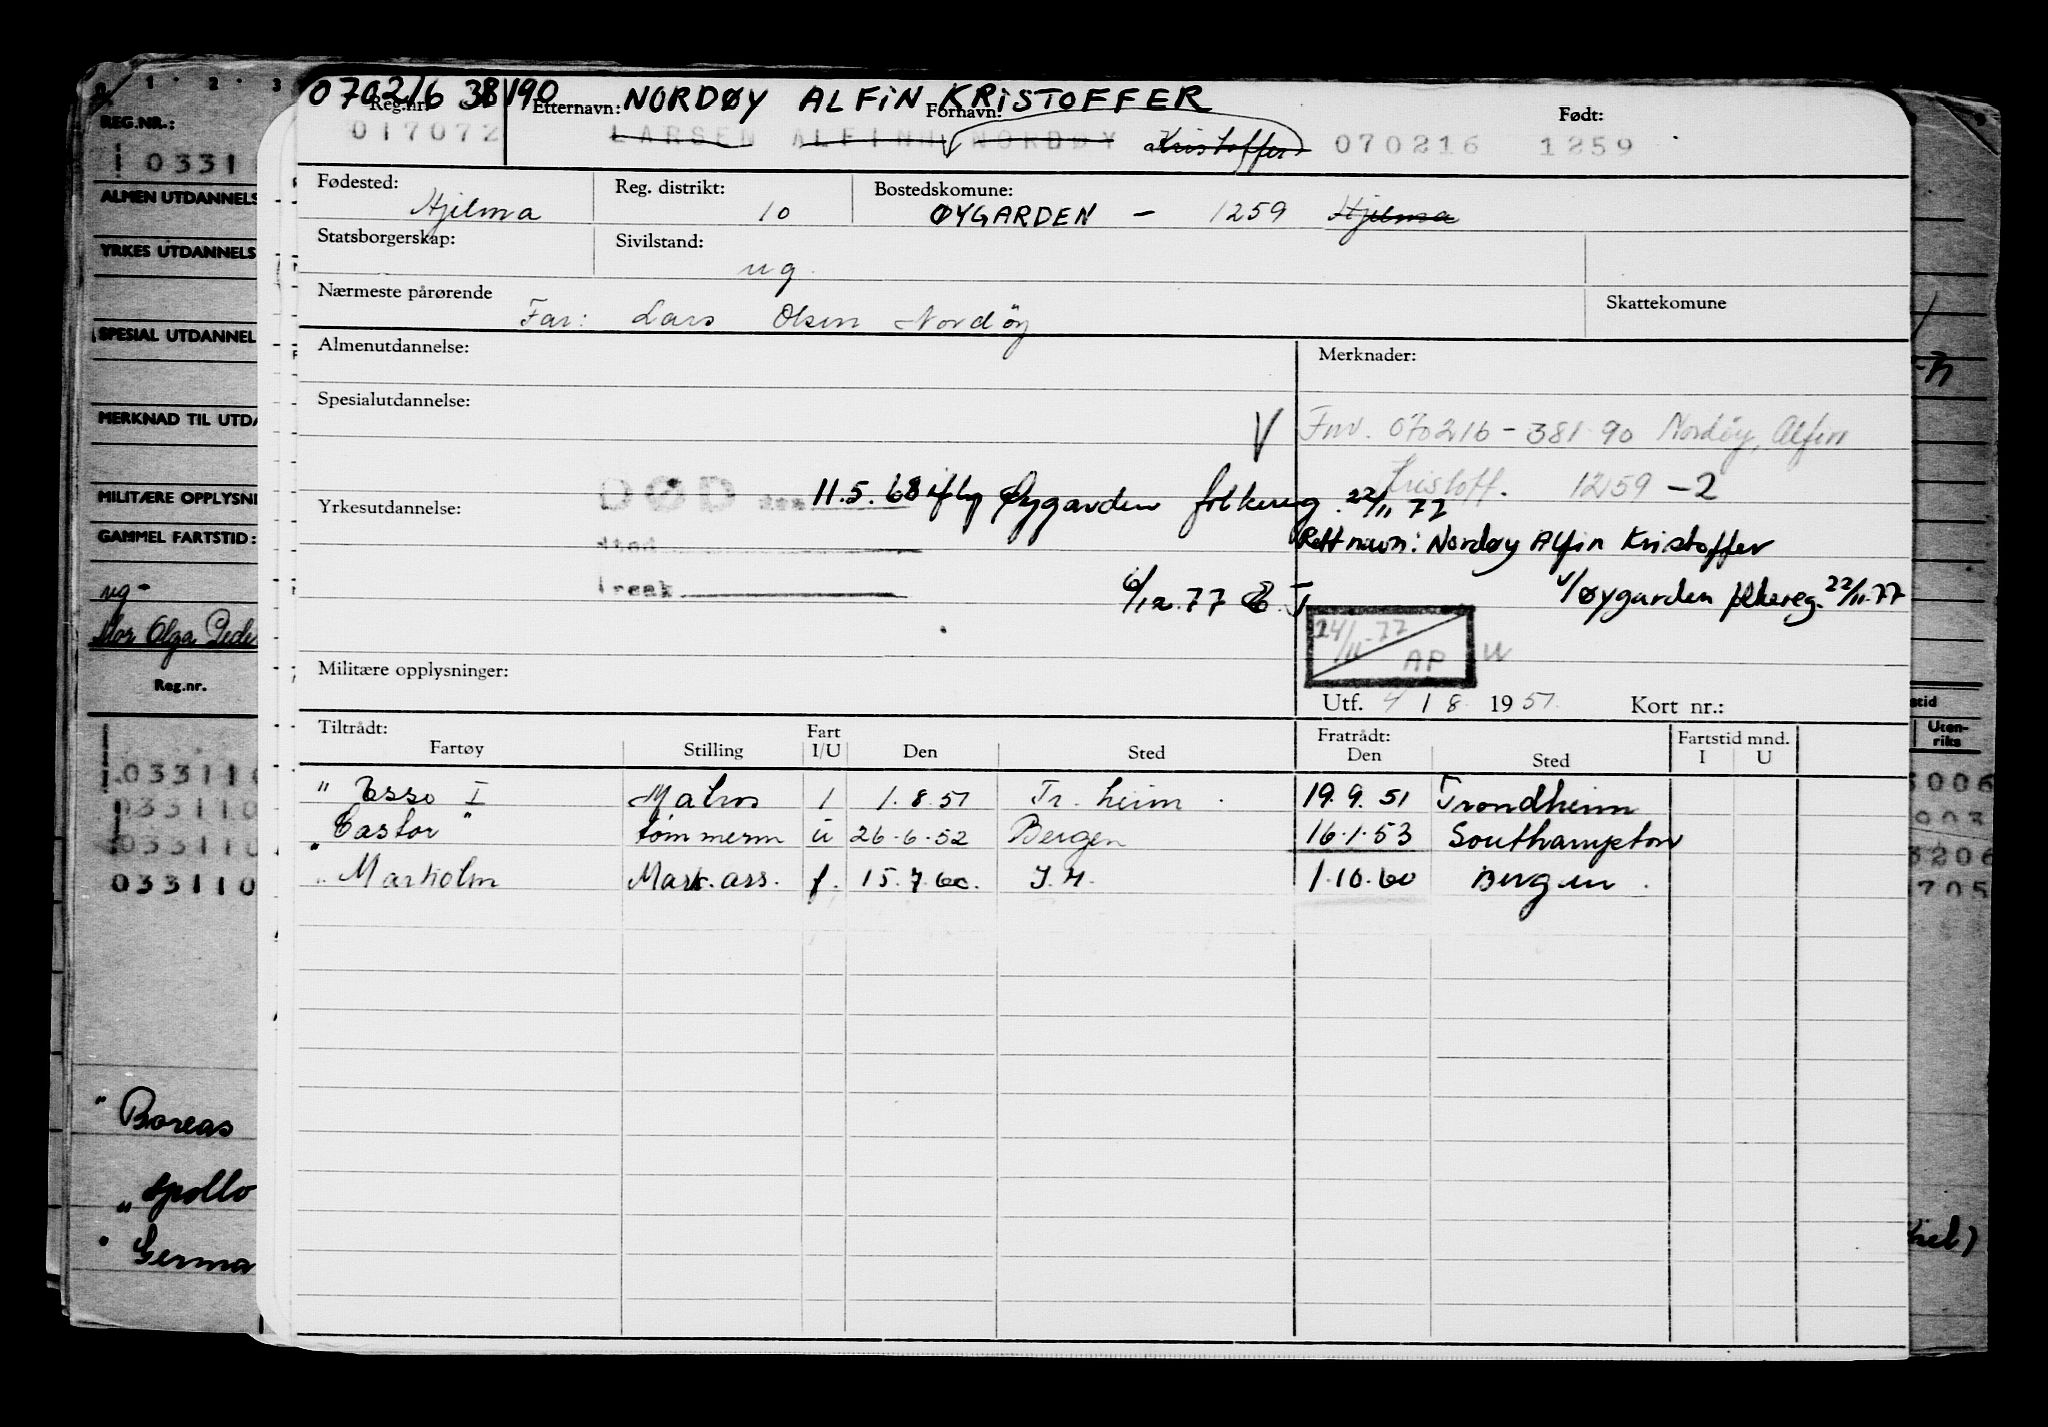 070216 38190 NORDØY ALFIN KRISTOFFER
Reg.nr. Etternavn: Fornavn: Født:
017072 LARSEN ALFINN NORDØY Kristoffer 070216 1259
Fødested: Reg. distrikt: Bostedskomune:
Hjelma 10 ØYGARDEN - 1259 Hjelma
Statsborgerskap: Sivilstand:
ug.
Nærmeste pårørende Skattekomune
Far: Lars Olsen Nordöy
Almenutdannelse: Merknader:
Spesialutdannelse:
V Fnr. 070216-381 90 Nordöy, Alfin
Kristoff. 1259-2
DØD den 11.5.68 iflg Øygarden folkereg. 22/11 77
Yrkesutdannelse:
sted
Rett navn: Nordøy Alfin Kristoffer
årsak 6/12.77
v/Øygarden folkereg. 22/11.77
24/11-77 AP
Militære opplysninger:
Utf. 4/8 1951 Kort nr.:
Tiltrådt: Fart Fratrådt: Fartstid mnd.
Fartøy Stilling I/U Den Sted Den Sted I U
" Esso I Matros I 1.8.51 Tr.heim. 19.9.51 Trondheim
"Castor" tømmerm u 26.6.52 Bergen 16.1.53 Southampton
" Marholm Mask.ass. f. 15.7.60. I.H. 1.10.60 Bergen.
REG.NR.:
03311
ALMEN UTDANNELS
YRKES UTDANNELS
SPESIAL UTDANNEL
MERKNAD TIL UTDA
MILITÆRE OPPLYSNI
GAMMEL FARTSTID:
ug-
Mor Olga Pede
Reg.nr.
033110
033110
033110
033110
" Boreas
" Apollo
" Germa
stid
Uten-
riks
5006
003
3206
705
Kiel)